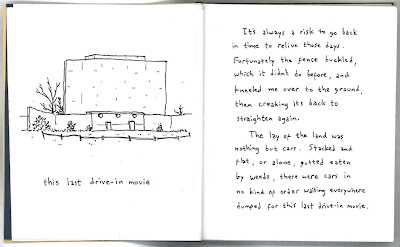 this last drive-in movie
It's always a risk to go back
in time to relive those days.
Fortunately the fence buckled,
which it didn't do before, and
kneeled me over to the ground,
then creaking it's back to
straighten again.
The lay of the land was
nothing but cars. Stacked and
flat, or alone, gutted eaten
by weeds, there were cars in
no kind of order waiting everywhere
dumped for this last drive-in movie.